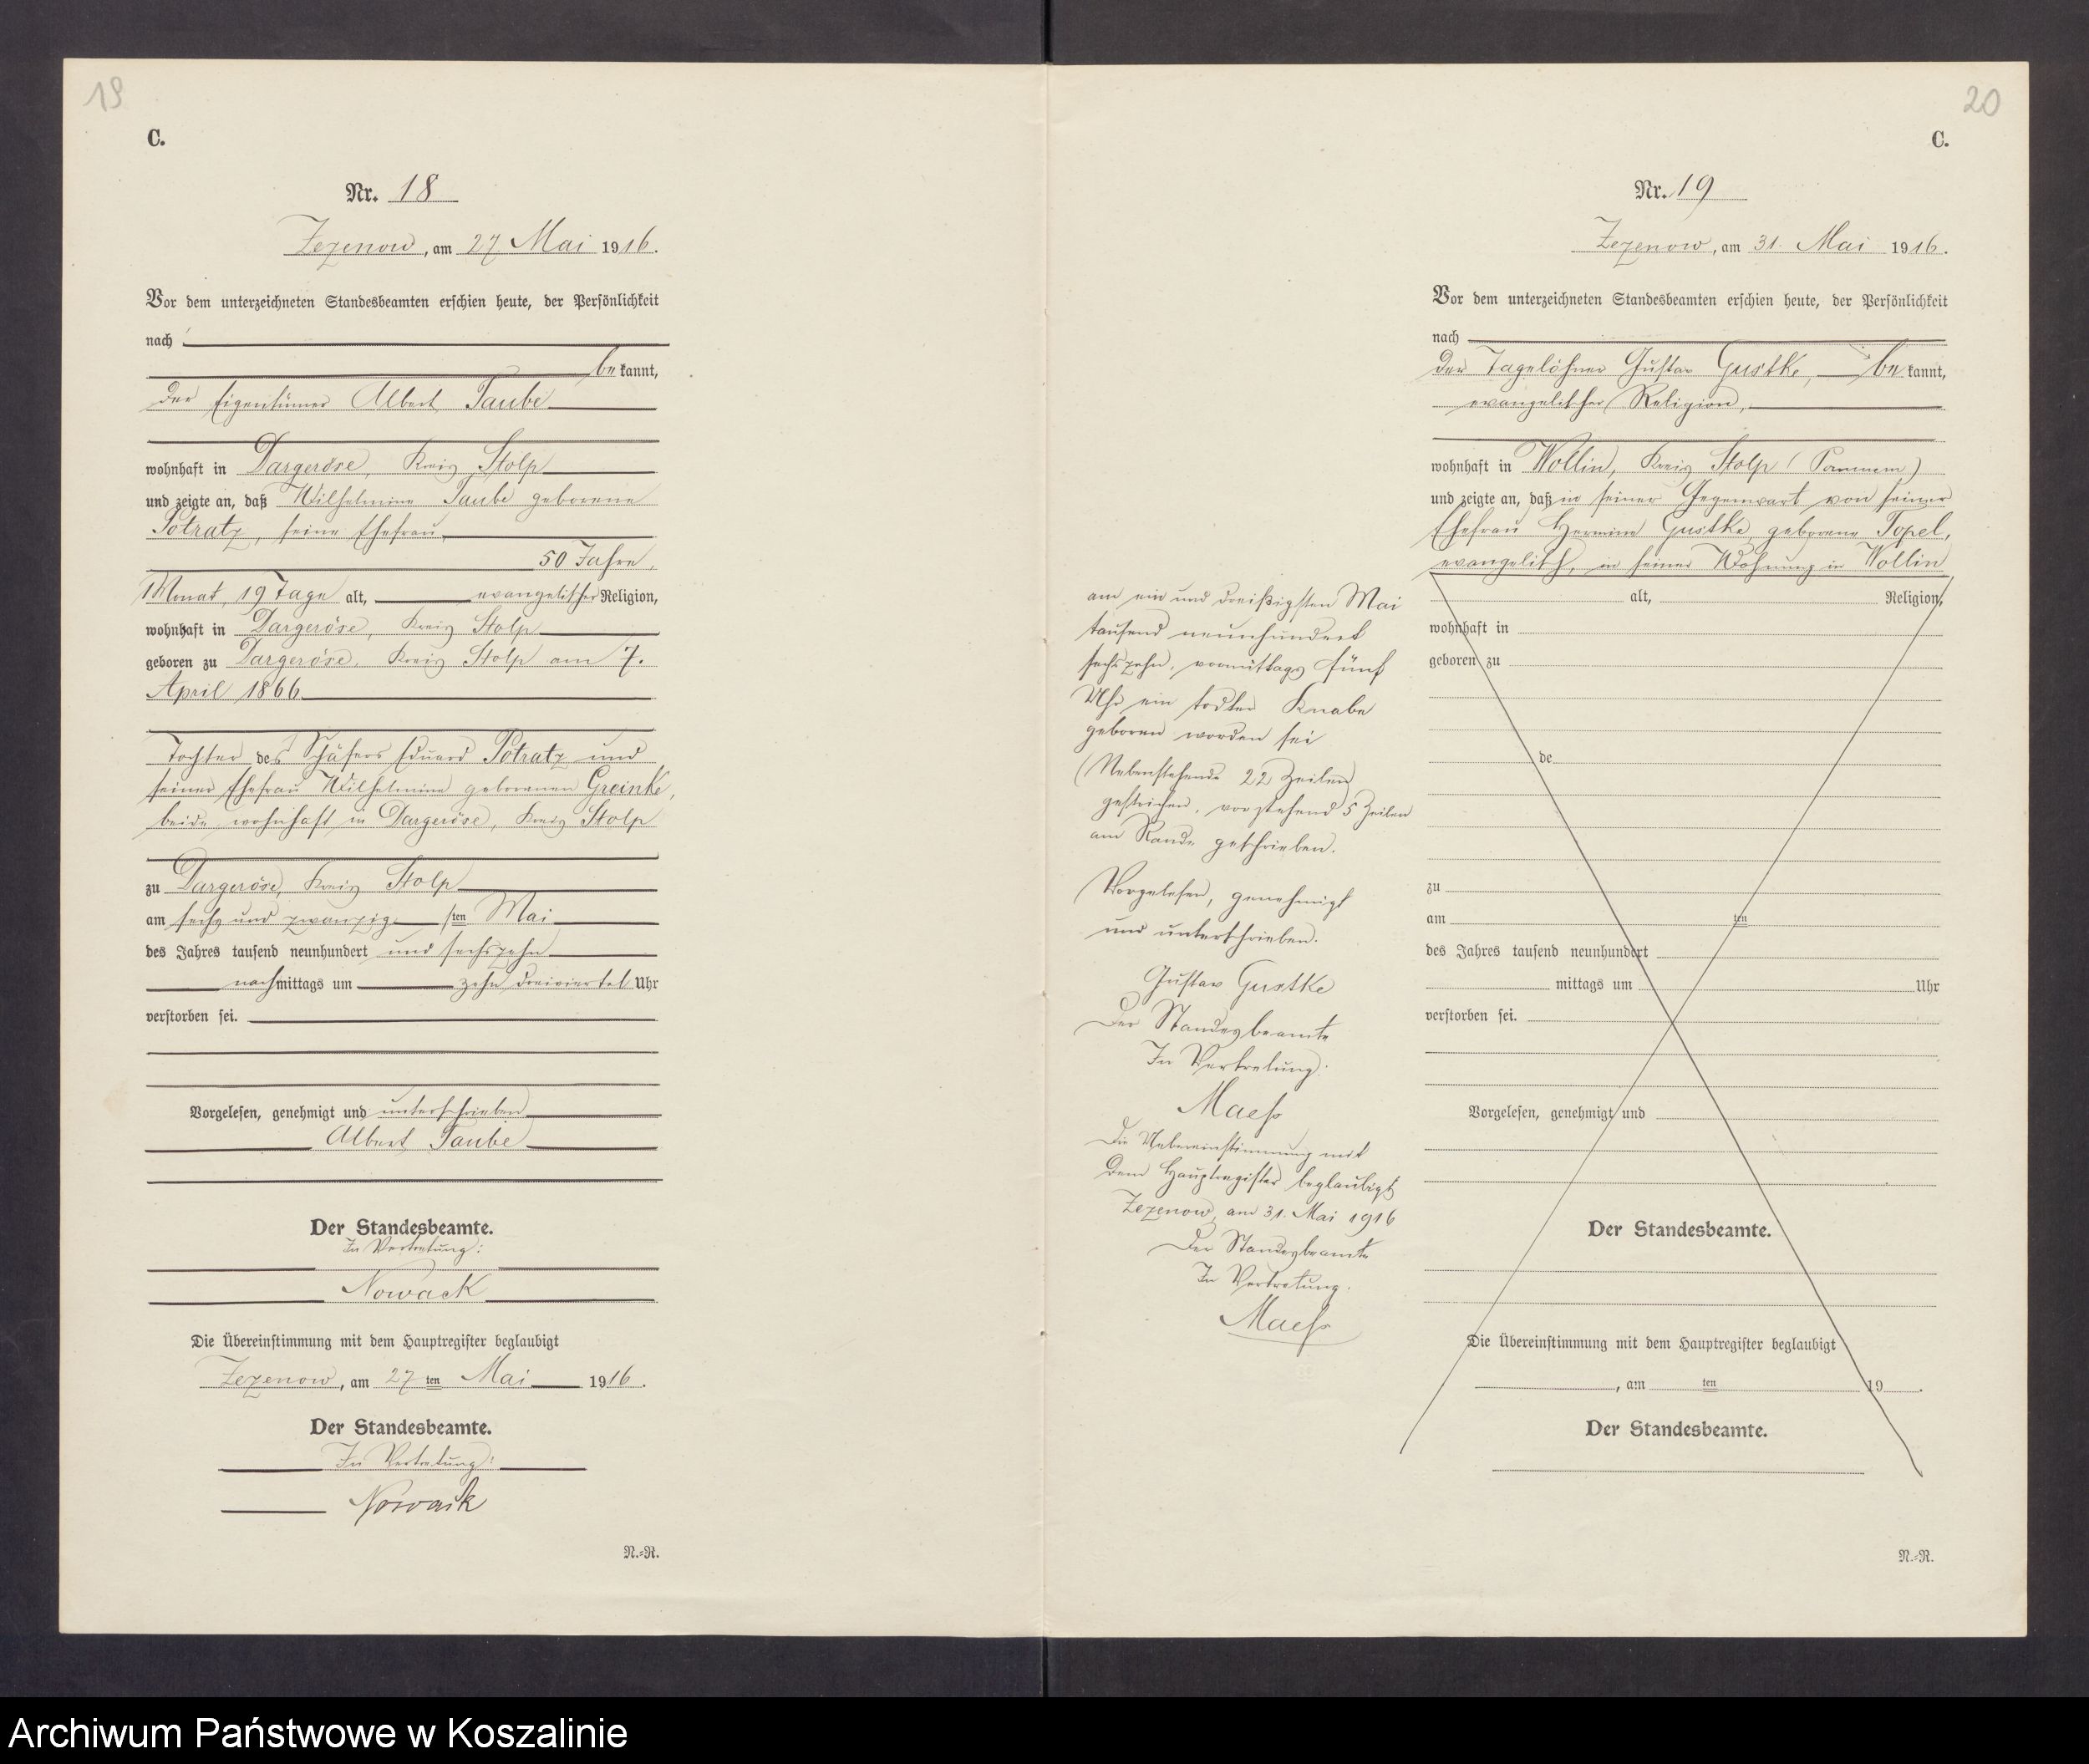 19
C.
Nr. 18
Zezenow, am 27. Mai 1916.
Vor dem unterzeichneten Standesbeamten erschien heute, der Persönlichkeit
nach
be kannt,
der Eigentümer Albert Taube
wohnhaft in Dargeröse, Kreis Stolp
und zeigte an, daß Wilhelmine Taube geborene
Potratz, seine Ehefrau,
50 Jahre,
1 Monat, 19 Tage alt, evangelischer Religion,
wohnhaft in Dargeröse, Kreis Stolp
geboren zu Dargeröse, Kreis Stolp am 7.
April 1866
Tochter des Schäfers Eduard Potratz und
seiner Ehefrau Wilhelmine geborenen Greinke,
beide wohnhaft in Dargeröse, Kreis Stolp
zu Dargeröse, Kreis Stolp
am sechs und zwanzig sten Mai
des Jahres tausend neunhundert und sechszehn
nachmittags um zehn dreiviertel Uhr
verstorben sei.
Vorgelesen, genehmigt und unterschrieben
Albert Taube
Der Standesbeamte.
In Vertretung:
Nowack
Die Übereinstimmung mit dem Hauptregister beglaubigt
Zezenow, am 27 ten Mai 1916.
Der Standesbeamte.
In Vertretung:
Nowack
N.-R.
20
C.
Nr. 19
Zezenow, am 31. Mai 1916.
Vor dem unterzeichneten Standesbeamten erschien heute, der Persönlichkeit
nach
der Tagelöhner Gustav Gustke, be kannt,
evangelischer Religion,
wohnhaft in Wollin, Kreis Stolp (Pommern)
und zeigte an, daß in seiner Gegenwart von seiner
Ehefrau Hermine Gustke, geborene Topel,
evangelisch, in seiner Wohnung in Wollin
am ein und dreißigsten Mai
tausend neunhundert
sechszehn, vormittags fünf
Uhr ein todter Knabe
geboren worden sei
(Nebenstehende 22 Zeilen)
gestrichen, vorstehend 5 Zeilen
am Rande geschrieben.
Vorgelesen, genehmigt
und unterschrieben.
Gustav Gustke
Der Standesbeamte
In Vertretung:
Maess
Die Uebereinstimmung mit
dem Hauptregister beglaubigt
Zezenow, am 31. Mai 1916
Der Standesbeamte
In Vertretung.
Maess
alt, Religion,
wohnhaft in
geboren zu
de
zu
am ten
des Jahres tausend neunhundert
mittags um Uhr
verstorben sei.
Vorgelesen, genehmigt und
Der Standesbeamte.
Die Übereinstimmung mit dem Hauptregister beglaubigt
, am ten 19 .
Der Standesbeamte.
N.-R.
Archiwum Państwowe w Koszalinie